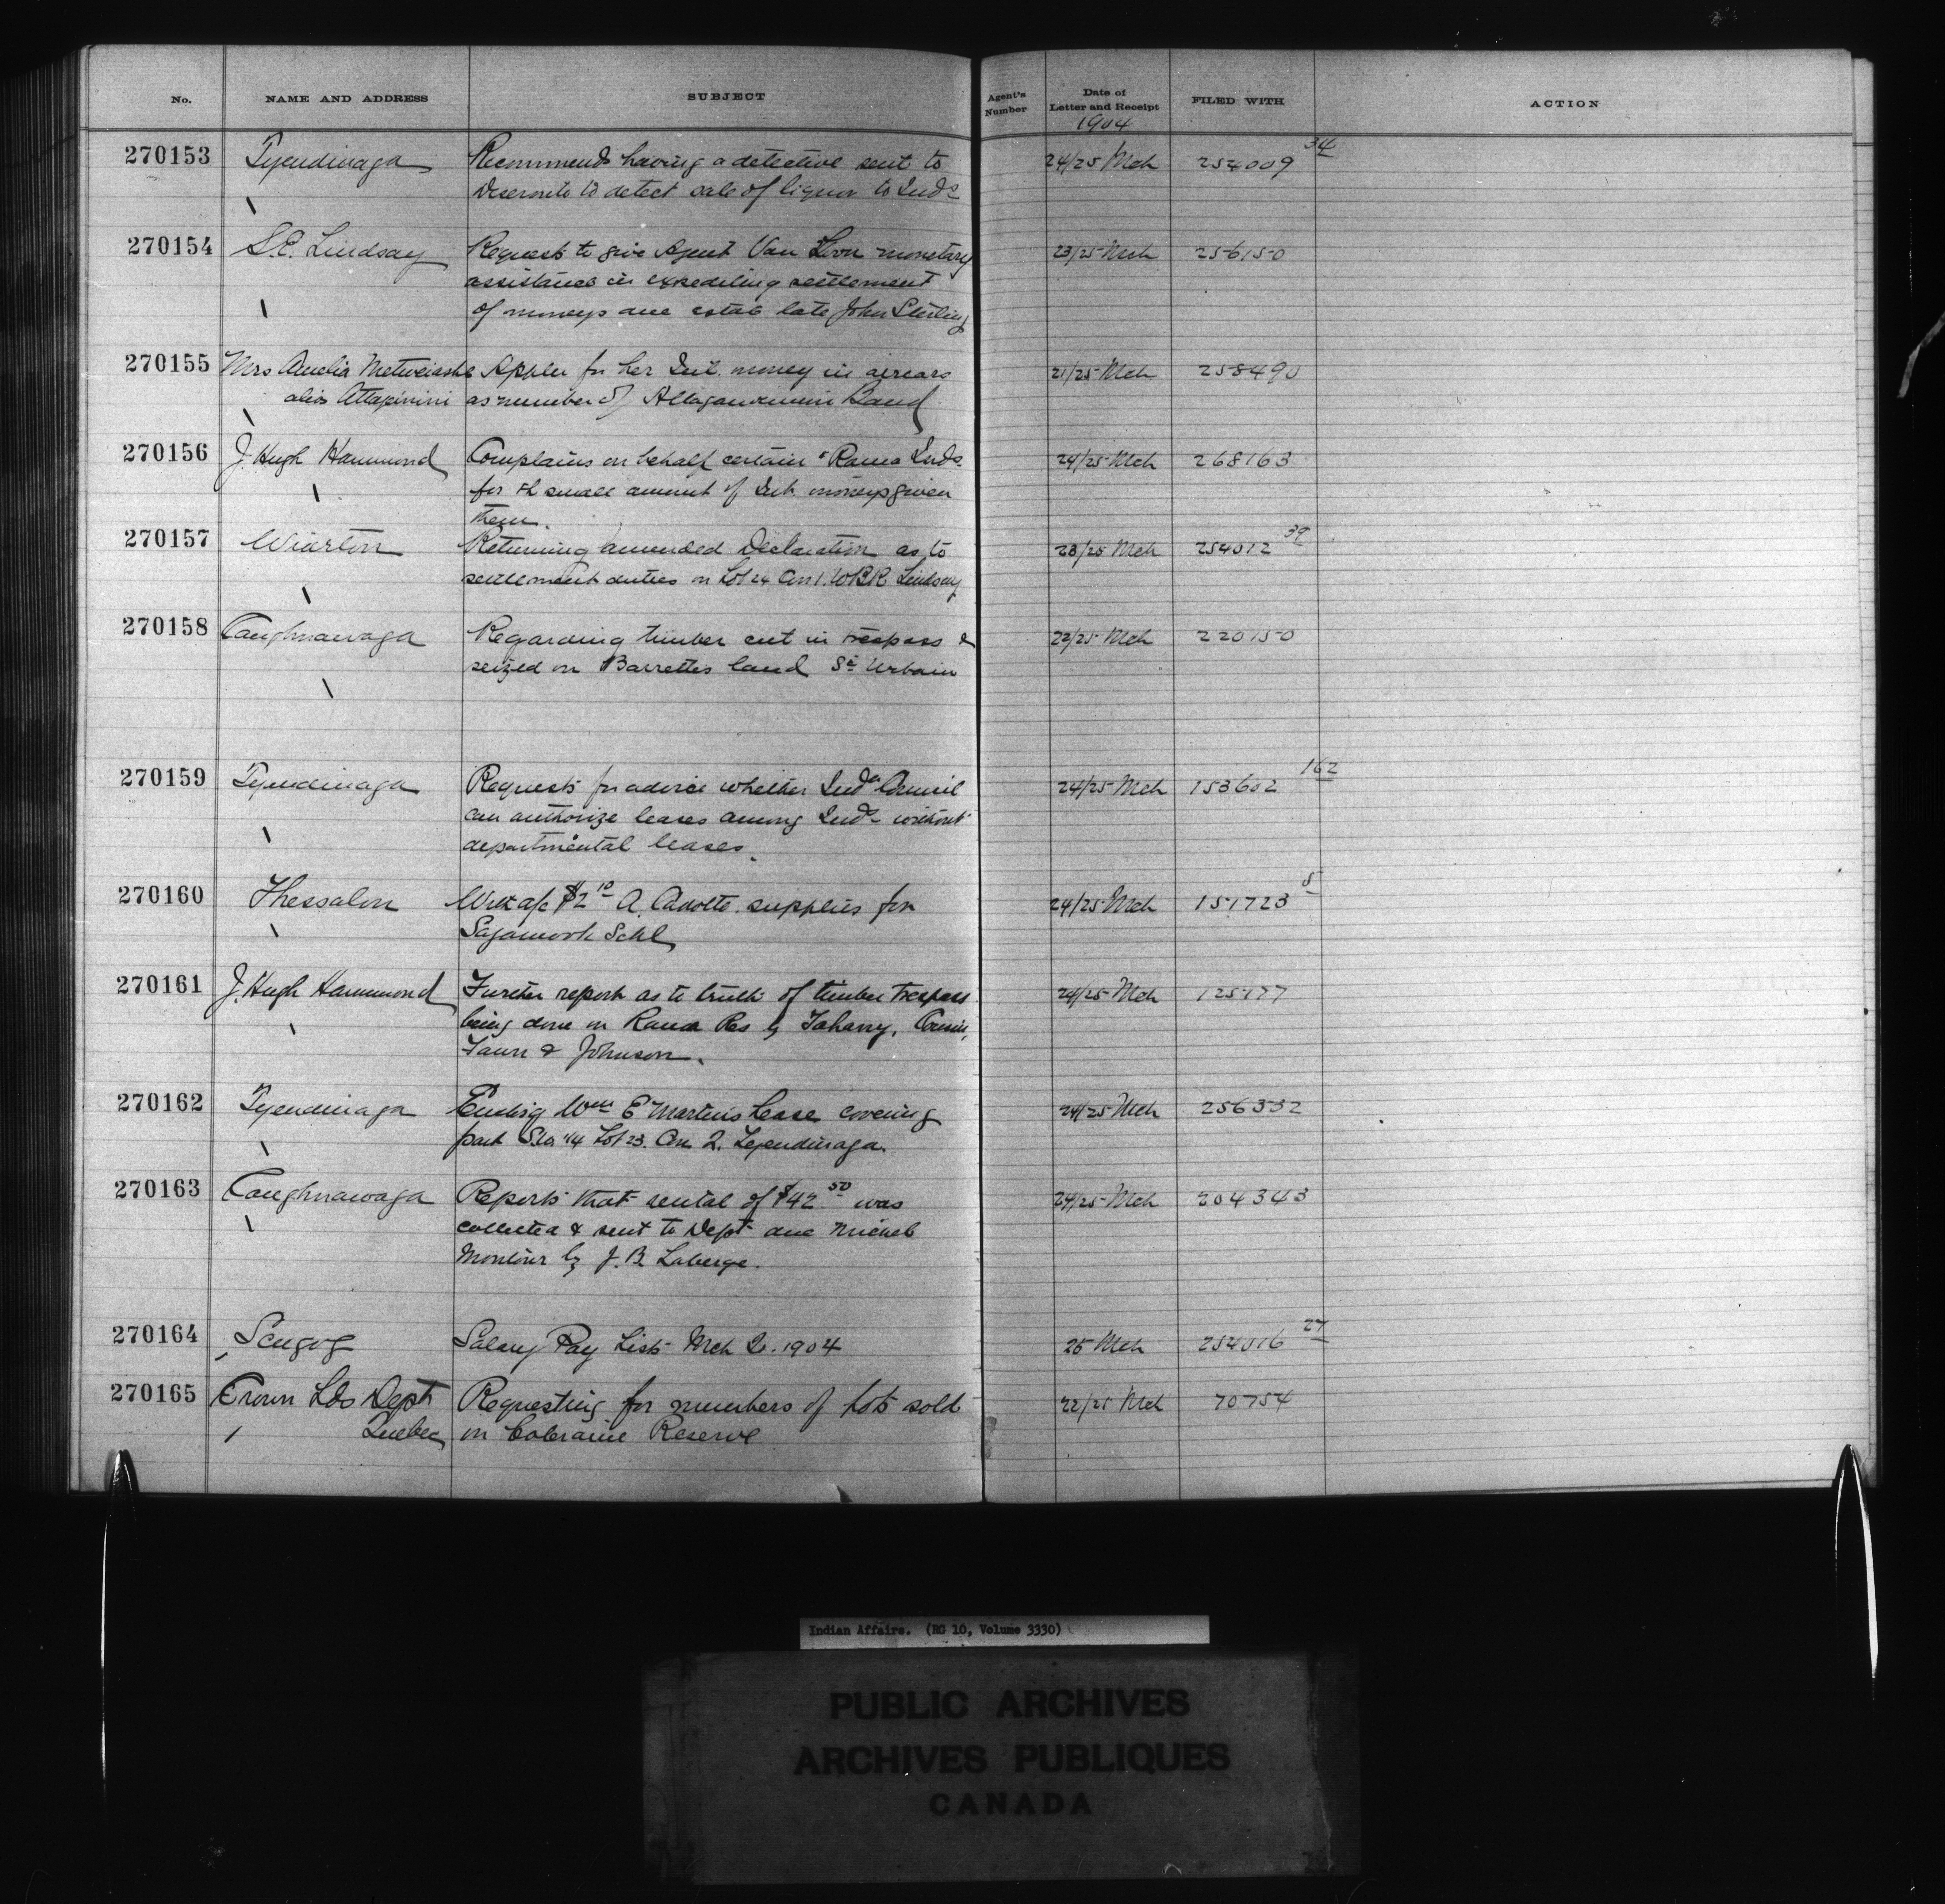 No. NAME AND ADDRESS SUBJECT Agent's Number Date of Letter and Receipt FILED WITH ACTION
1904
270153 Tyendinaga Recommends having a detective sent to 24/25 Mch 254009 34
Deseronto to detect sale of liquor to Inds
270154 S.C. Lindsay Requests to give Agent Van Loon monetary 23/25 Mch 256150
assistance in expediting settlement
of moneys due estate late John Sterling
270155 Mrs Amelia Appln for her Int. money in arrears 21/25 Mch 258490
alias Attapinini as member of Band
270156 J. Hugh Hammond Complains on behalf certain Rama Inds. 24/25 Mch 268163
for small amount of Int. moneys given
them.
270157 Wiarton Returning amended Declaration as to 23/25 Mch 254012 39
settlement duties on Lot 24 Con 1. WBR Lindsay
270158 Caughnawaga Regarding timber cut in trespass & 22/25 Mch 220150
seized on Barrettes land St Urbain
270159 Tyendinaga Requests for advice whether Indn Council 24/25 Mch 153602 162
can authorize leases among Inds without
departmental leases.
270160 Thessalon a/c $2 10 A. supplies for 24/25 Mch 151723 5
Sagamook Schl
270161 J. Hugh Hammond Further report as to truth of timber trespass 24/25 Mch 125177
being done on Rama Res by
& Johnson.
270162 Tyendinaga Enclsig Wm E Martin's Lease covering 24/25 Mch 256332
part 1/4 Lot 23. Con 2. Tyendinaga.
270163 Caughnawaga Reports that rental of $42 50 was 24/25 Mch 204343
collected & sent to Dept due Michel
Montour by J. B. Laberge.
270164 Scugog Salary Pay List Mch Q. 1904 25 Mch 254016 27
270165 Crown Lds Dept Requesting for numbers of lots sold 22/25 Mch 70754
Quebec on Coleraine Reserve
Indian Affairs. (RG 10, Volume 3330)
PUBLIC ARCHIVES
ARCHIVES PUBLIQUES
CANADA